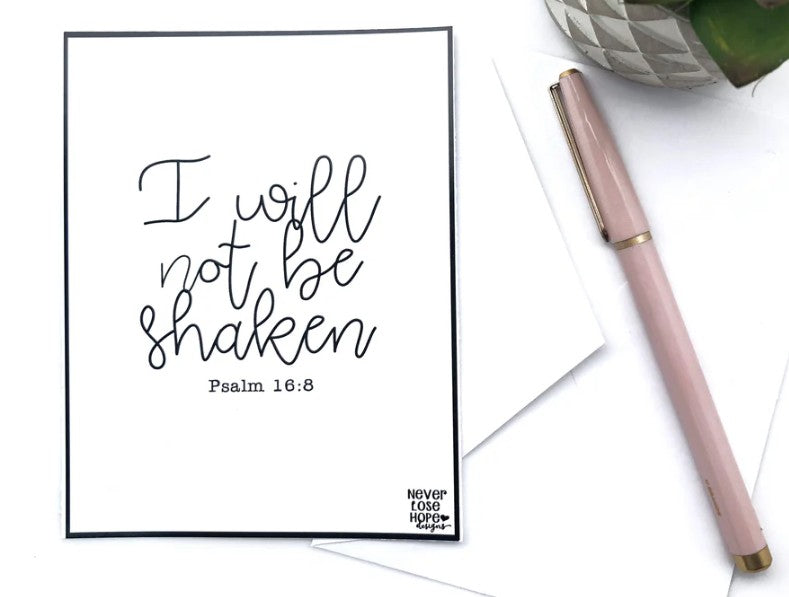 I will
not be
shaken
Psalm 16:8
Never
Lose
HOPE
designs